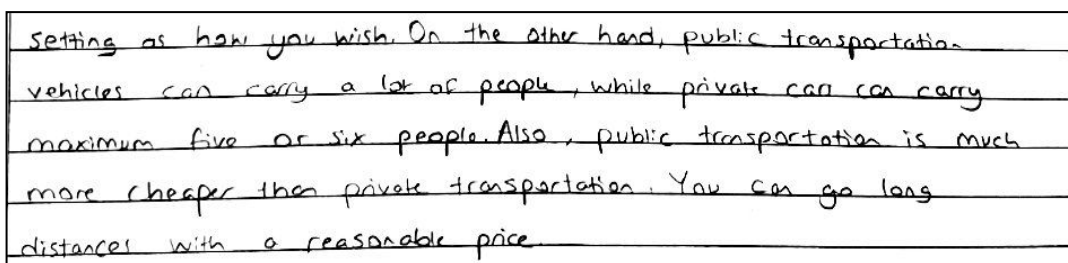 setting as how you wish. On the other hand, public transportation
vehicles can carry a lot of people, while private can can carry
maximum five or six people. Also, public transportation is much
more cheaper than private transportation. You can go long
distances with a reasonable price